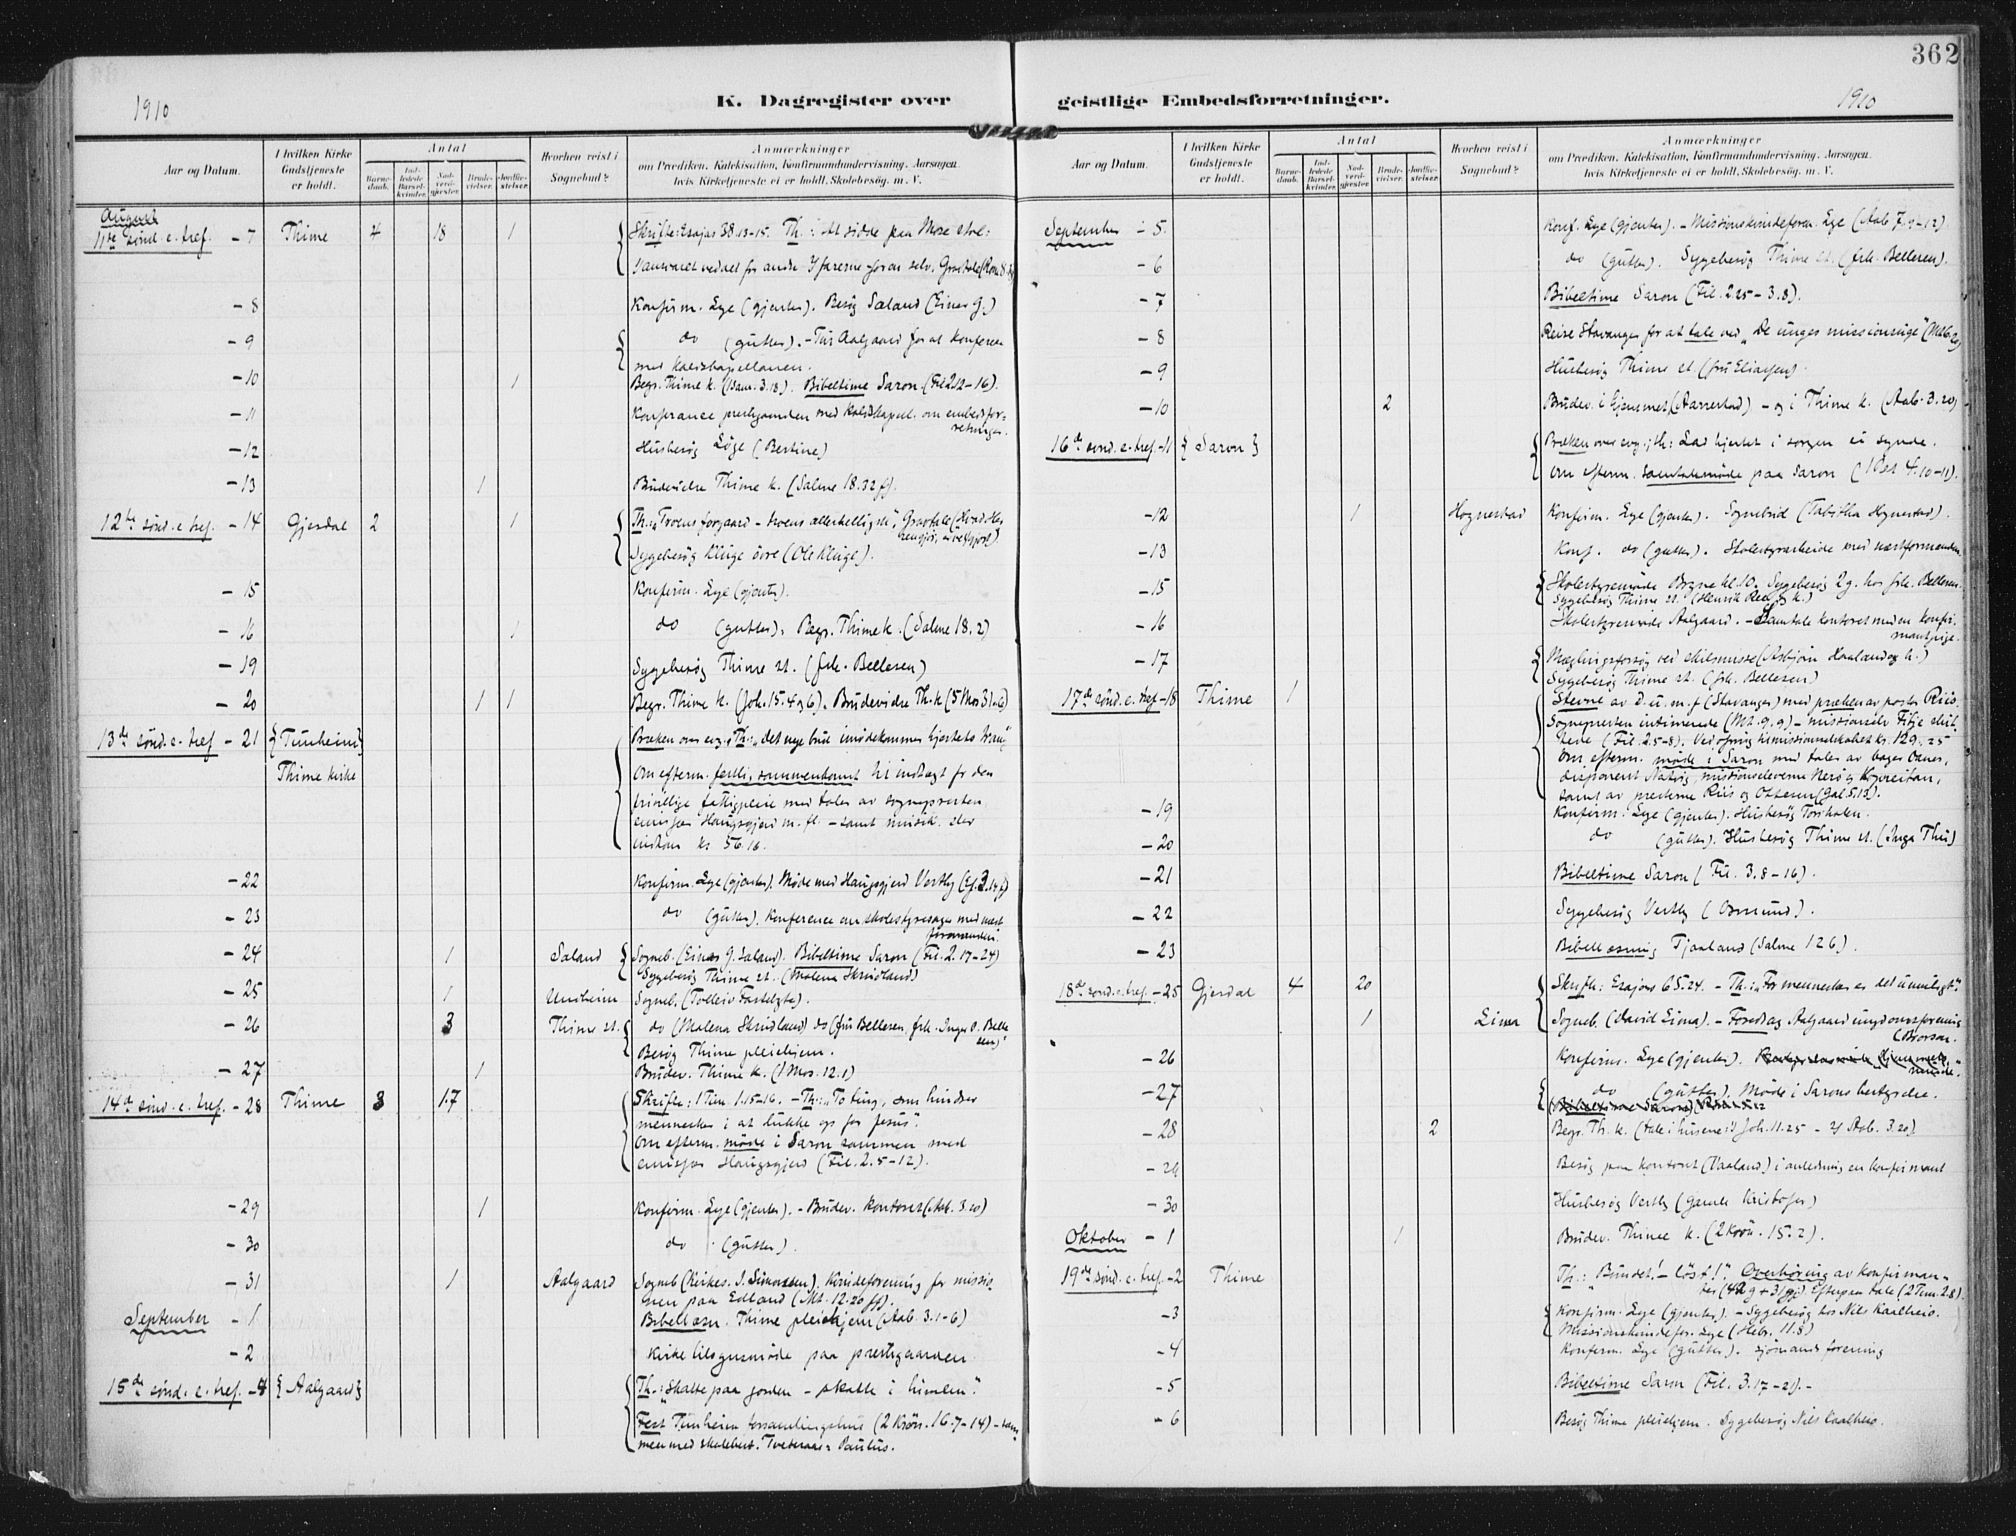 362
1910
K. Dagregister over
Aar og Datum.
I hvilken Kirke Gudstjeneste er holdt.
Antal
Barnedaab.
Indledede Barselkvinder.
Nadverdgjester.
Brudevielser.
Jordfæstelser.
Hvorhen reist i Sognebud?
Anmærkninger
om Prædiken, Katekisation, Konfirmandundervisning. Aarsagen,
hvis Kirketjeneste ei er holdt, Skolebesøg, m. V.
August
11te sønd. e. tref. - 7 Thime 4 18 1 Skrifte: Esajas 38.13-15. Th.: At sidde paa Mose stol:
- 8 Konfirm. Lye (gjenter). Besøg Sæland (Einer G.)
- 9 do (gutter). - Tur Aalgaard for at konferere
med kaldskapellanen.
- 10 1 Begr. Thime k. (Sam. 3.18). Bibeltime Saron. (Fil 2.12-16).
- 11 Konferance prestegaarden med kaldskapel. om embedsfor-
retninger.
- 12 Husbesøg Løge (Bertine)
- 13 1 Brudevielse Thime k. (Salme 18.32 ff).
12te sønd. e. tref. - 14 Gjesdal 2 1 Th.: "Troens forgaard - troens allerhelligste".
Sygebesøg Kluge øvre (Ole Kluge).
- 15 Konfirm. Lye (gjenter).
- 16 1 do (gutter). Begr. Thime k. (Salme 18.2)
- 19 Sygebesøg Thime st. (frk. Bellesen)
- 20 1 1 Begr. Thime k. (Joh. 15.4 og 6). Brudevielse Th. k (5 Mos 31.6)
13de sønd. e. tref - 21 {Tunheim} Præken over evg. Th: "det nye bud imødekommer hjertets trang"
Thime kirke Om efterm. festlig sammenkomst til indtægt for den
frivillige fattigpleie med taler av sognepresten
emissær Haugsgjerd m. fl. - samt musik.
indkom kr 56.16.
- 22 Konfirm. Lye (gjenter). Møde med Haugsgjerd Vestly
- 23 do (gutter). Konference om skolestyresager med næst
formanden.
- 24 1 Sæland Sogneb. (Einar G. Sæland). Bibeltime Saron (Fil. 2.17-24)
Sygebesøg Thime st. (Malena Skrudland)
- 25 1 Undheim Sogneb.
- 26 3 Thime st. do (Malena Skrudland) do (fru Bellesen, frk. Inger O. Belle
sen)
Besøg Thime pleiehjem.
- 27 1 Brudev. Thime k. (1 Mos. 12.1)
14de sønd. e. tref. - 28 Thime 3 17 Skrifte: 1 Tim. 1.15-16. - Th: "To ting, som hindrer
mennesker i at lukke op for Jesus".
Om efterm. møde i Saron sammen med
emissær Haugsgjerd (Fil. 2.5-12).
- 29 1 Konfirm. Lye (gjenter). - Brudev. kontoret (Aab. 3.20)
- 30 do (gutter).
- 31 1 Aalgaard Sogneb (Kirkes. J. Simonsen). Kvindeforening for missio
nen paa Edland (Mt. 12.20 ff).
September - 1 Bibellæsn. Thime pleiehjem (Aab. 3.1-6)
- 2 Kirketilsynsmøde paa prestegaarden
15de sønd. e. tref. - 4 {Aalgaard} Th.: "Skatte paa jorden - skatte i himlen".
Fest Tunheim forsamlingshus (2 Krøn. 16.7-14) - sam
men med skolebest. Tveteraas: Paulus.
geistlige Embedsforretninger.
1910
Aar og Datum.
I hvilken Kirke Gudstjeneste er holdt.
Antal
Barnedaab.
Indledede Barselkvinder.
Nadverdgjester.
Brudevielser.
Jordfæstelser.
Hvorhen reist i Sognebud?
Anmærkninger
om Prædiken, Katekisation, Konfirmandundervisning. Aarsagen,
hvis Kirketjeneste ei er holdt, Skolebesøg, m. V.
September - 5. Konf. Lye (gjenter). - Missionskvindeforen. Lye (Aab 7.9-12).
- 6 do (gutter). Sygebesøg Thime st. (frk. Bellesen).
- 7 Bibeltime Saron (Fil. 2.25-3.8).
- 8 Reise Stavanger for at tale ved "De unges missionsuge"
- 9 Husbesøg Thime st. (fru Eliassen).
- 10 2 Brudev. i hjemmet (Aarrestad) - og i Thime k. (Aab. 3.20)
16de sønd. e. tref. - 11 {Saron} Præken over evg.; th: Lad hjertet i sorgen ei synde.
Om efterm. samtalemøde paa Saron (1 Pet 4.10-11).
- 12 1 Hognestad Konfirm. Lye (gjenter). Sognebud (Tabitha Hognestad).
- 13 Konf. do (gutter). Skolestyrarbeide med næstformanden.
- 15 Skolestyremøde Bryne kl. 10. Sygebesøg 2 g. hos frk. Bellesen.
Sygebesøg Thime st.
- 16 Skolestyremøde Aalgaard. - Samtale kontoret med en konfir-
mantpige.
- 17 Mæglingsforsøg ved skilsmisse (Asbjørn Haaland og h.)
Sygebesøg Thime st. (frk. Bellesen)
17de sønd. e. tref - 18 Thime 1 Stevne av D. u. m. f (Stavanger) med præken av pastor Riis.
Sognepresten intimerede (Mt. 9.9) - missionselev Fitje slut-
tede (Fil. 2.5-8). Ved ofring til missionsselskabet kr. 129.25
Om efterm. møde i Saron med taler av
samt av presterne Riis og Ottesen (Gal. 5.13).
- 19 Konfirm. Lye (gjenter). Husbesøg Torsholen.
- 20 do (gutter). Husbesøg Thime st. (Inga Thu)
- 21 Bibeltime Saron (Fil. 3.8-16).
- 22 Sygebesøg Vestly (Osmund).
- 23 Bibellæsning Tjaaland (Salme 126).
18de sønd. e. tref. - 25 Gjesdal 4 20 Skrifte: Esajas 65.24. - Th.: "For mennesker er det umuligt".
1 Lima Sogneb. (David Lima). - Foredrag Aalgaard ungdomsforening
(Brorson.
- 26 Konfirm. Lye (gjenter).
- 27 do (gutter). Møde i Sarons bestyrelse.
- 28 2 Begr. Th. k. (tale i husene: 1) Joh. 11.25 - 2) Aab. 3.20).
- 29 Besøg paa kontoret (Vaaland) i anledning en konfirmant
- 30 Husbesøg Vestly (gamle Kristofer)
Oktober - 1 1 Brudev. Thime k. (2 Krøn. 15.2).
19de sønd. e. tref. - 2 Thime Th.: "Bundet! - løst!". Overhøring av konfirman-
ter (42 g + 31 gj) Efterpaa tale (2 Tim. 2.8).
- 3 Konfirm. Lye (gjenter). - Sygebesøg hos Nils Kaalheio.
Missionskvindefor. Lye (Hebr. 11.8)
- 4 Konfirm. Lye (gutter). Sjømandsforening
- 5 Bibeltime Saron (Fil. 3.17-21). -
- 6 Besøg Thime pleiehjem. Sygebesøg Nils Kaalheio.